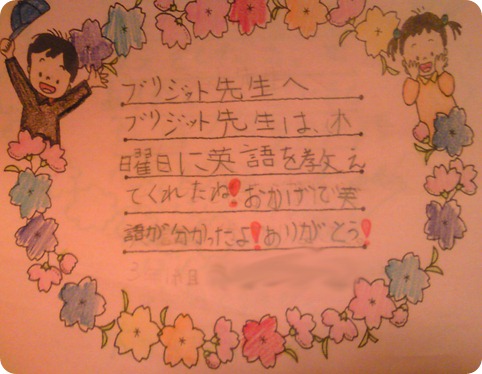 ブリジット先生へ
ブリジット先生は、木
曜日に英語を教え
てくれたね!おかげで英
語が分かったよ!ありがとう!